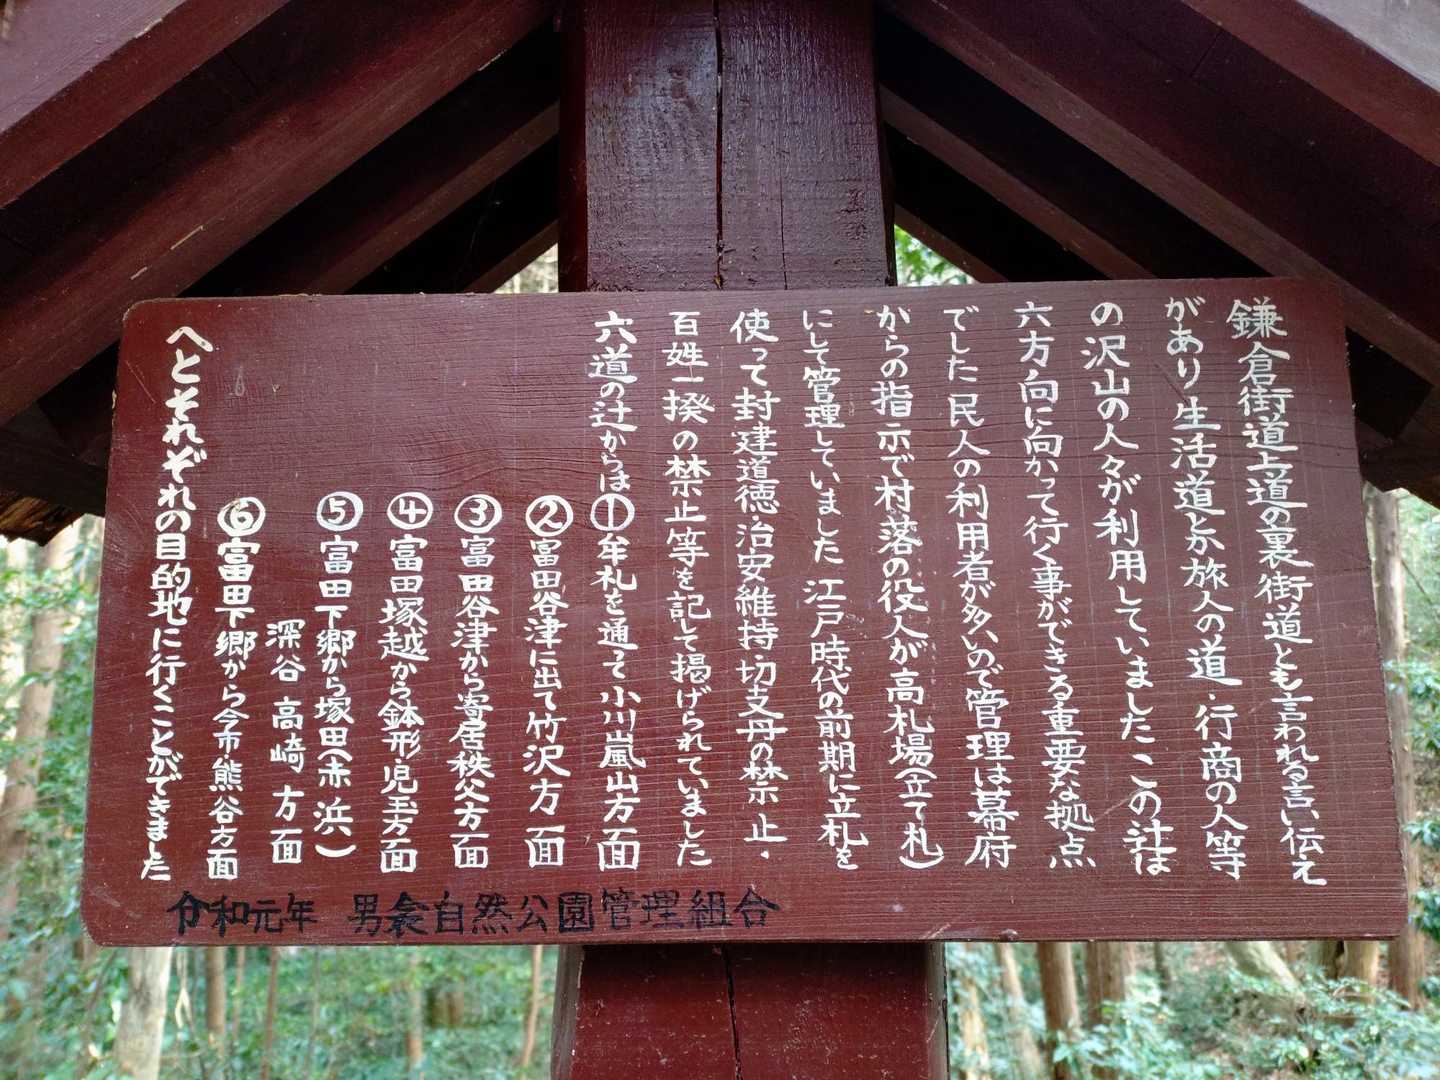 鎌倉街道上道の裏街道とも言われる言い伝え
があり生活道とか旅人の道・行商の人等
の沢山の人々が利用していましたこの辻は
六方向に向かって行く事ができる重要な拠点
でした民人の利用者が多いので管理は幕府
からの指示で村落の役人が高札場(立て札)
にして管理していました江戸時代の前期に立札を
使って封建道徳・治安維持切支丹の禁止・
百姓一揆の禁止等を記して掲げられていました
六道の辻からは①牟礼を通って小川嵐山方面
②富田谷津に出て竹沢方面
③富田谷津から寄居秩父方面
④富田塚越から鉢形・児玉方面
⑤富田下郷から塚田(赤浜)
深谷高崎方面
⑥富田下郷から今市・熊谷方面
へとそれぞれの目的地に行くことができました
令和元年 男衾自然公園管理組合